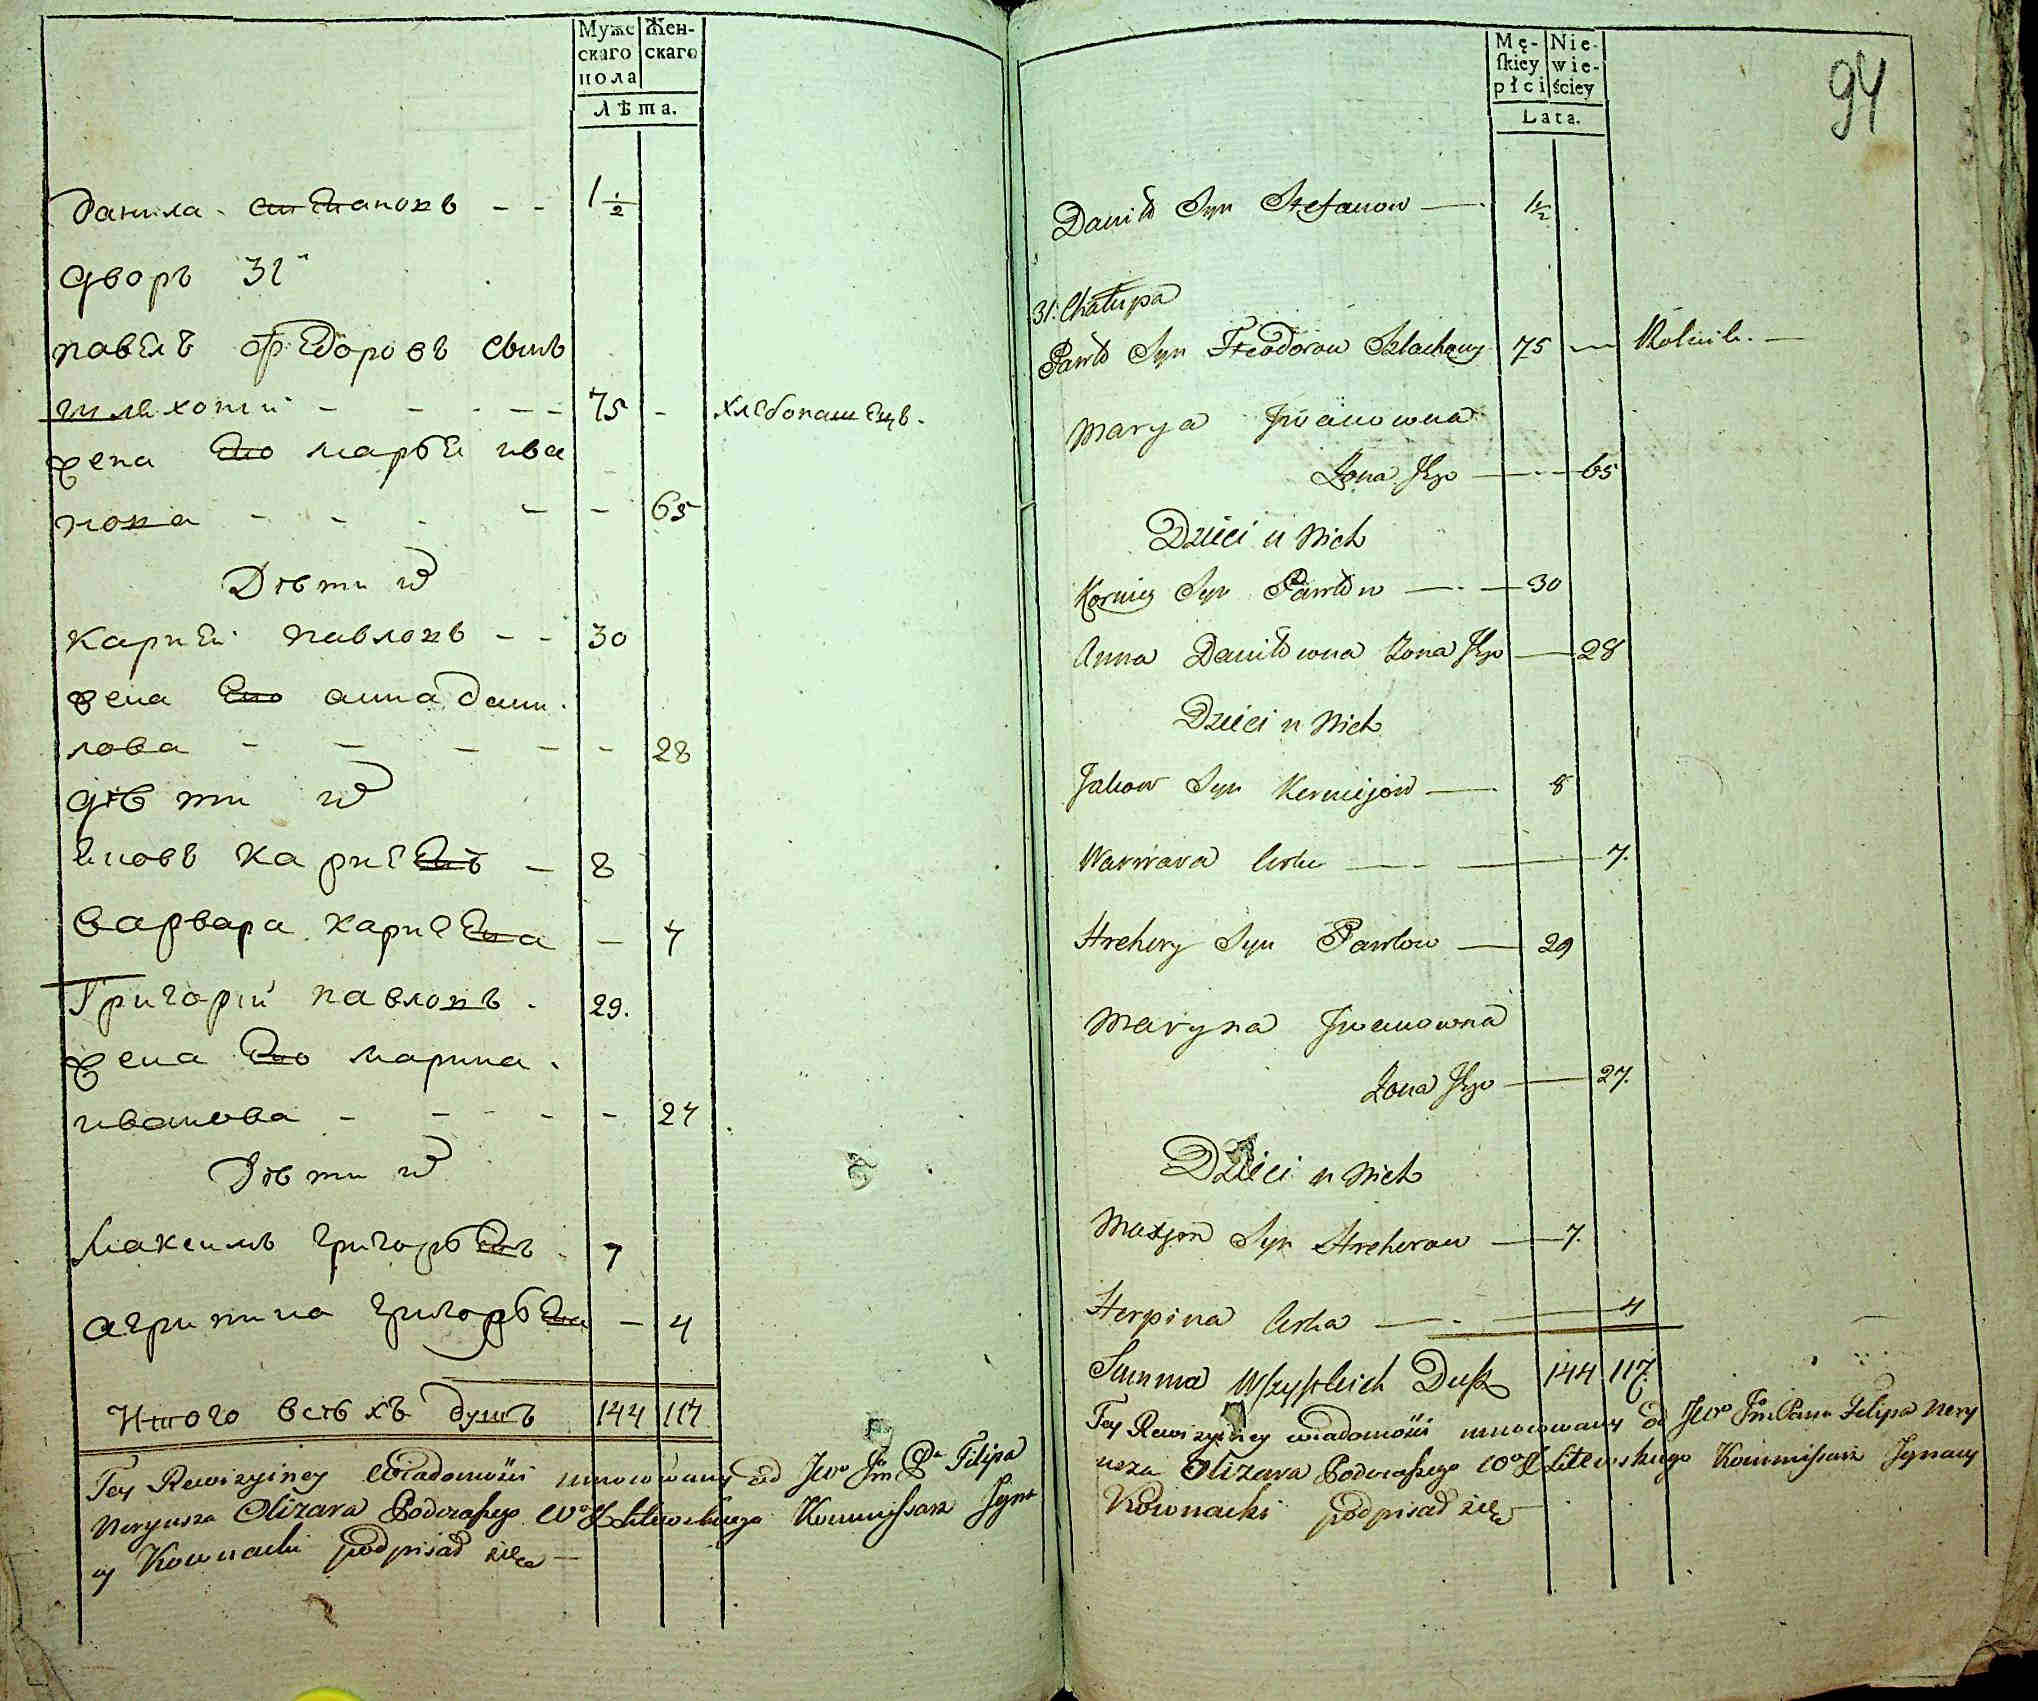 Муже
скаго
пола
Жен-
скаго
Лѣта.
Данила степановъ - - 1 1/2
Дворъ 31й
павелъ федоровъ сынъ
шляхотій - - - - - 75 - хлебопашецъ.
жена его марья ива
нова - - - - - 65
Дѣти ихъ
Карпѣй павловъ - - 30
жена его анна дани-
лова - - - - - 28
Дѣти ихъ
яковъ карпѣевъ - 8
варвара карпѣева - 7
Григорій павловъ . 29.
жена его марина .
иванова - - - - - 27
Дѣти ихъ
Максимъ григорьевъ . 7
агрипина григорьева - 4
Итого всѣхъ душъ 144 117
Tey Rewizyiney wiadomości umocowany od JWo Jm Pa Filipa
Neryusza Olizara Podczaszego WoXLitewskiego Kommissarz Jgna
cy Kownacki podpisał się —
94
Mę-
skiey
płci
Nie-
wie-
ściey
Lata.
Daniło Syn Stefanow — 1 1/2
31: Chałupa
Pawło Syn Fteodorow Szlachowy 75 — Rolnik. —
Marya Jwanowna
Żona Jego — — 65
Dzieci u Nich
Korniey Syn Pawłow — . — 30
Anna Daniłowna Żona Jego — 28
Dzieci u Nich
Jakow Syn Kerniejow — 8
Warwara Curka — — 7.
Hrehory Syn Pawłow — 29
Maryna Jwanowna
Żona Jego — 27.
Dzieci u Nich
Maxym Syn Hrehorow — 7.
Herpina Curka — . — 4
Summa Wszystkich Dusz 144 117.
Tey Rewizyiney wiadomości umocowany od JWo Jm Pana Filipa Nery
usza Olizara Podczaszego WoXLitewskiego Kommissarz Jgnacy
Kownacki podpisał się —